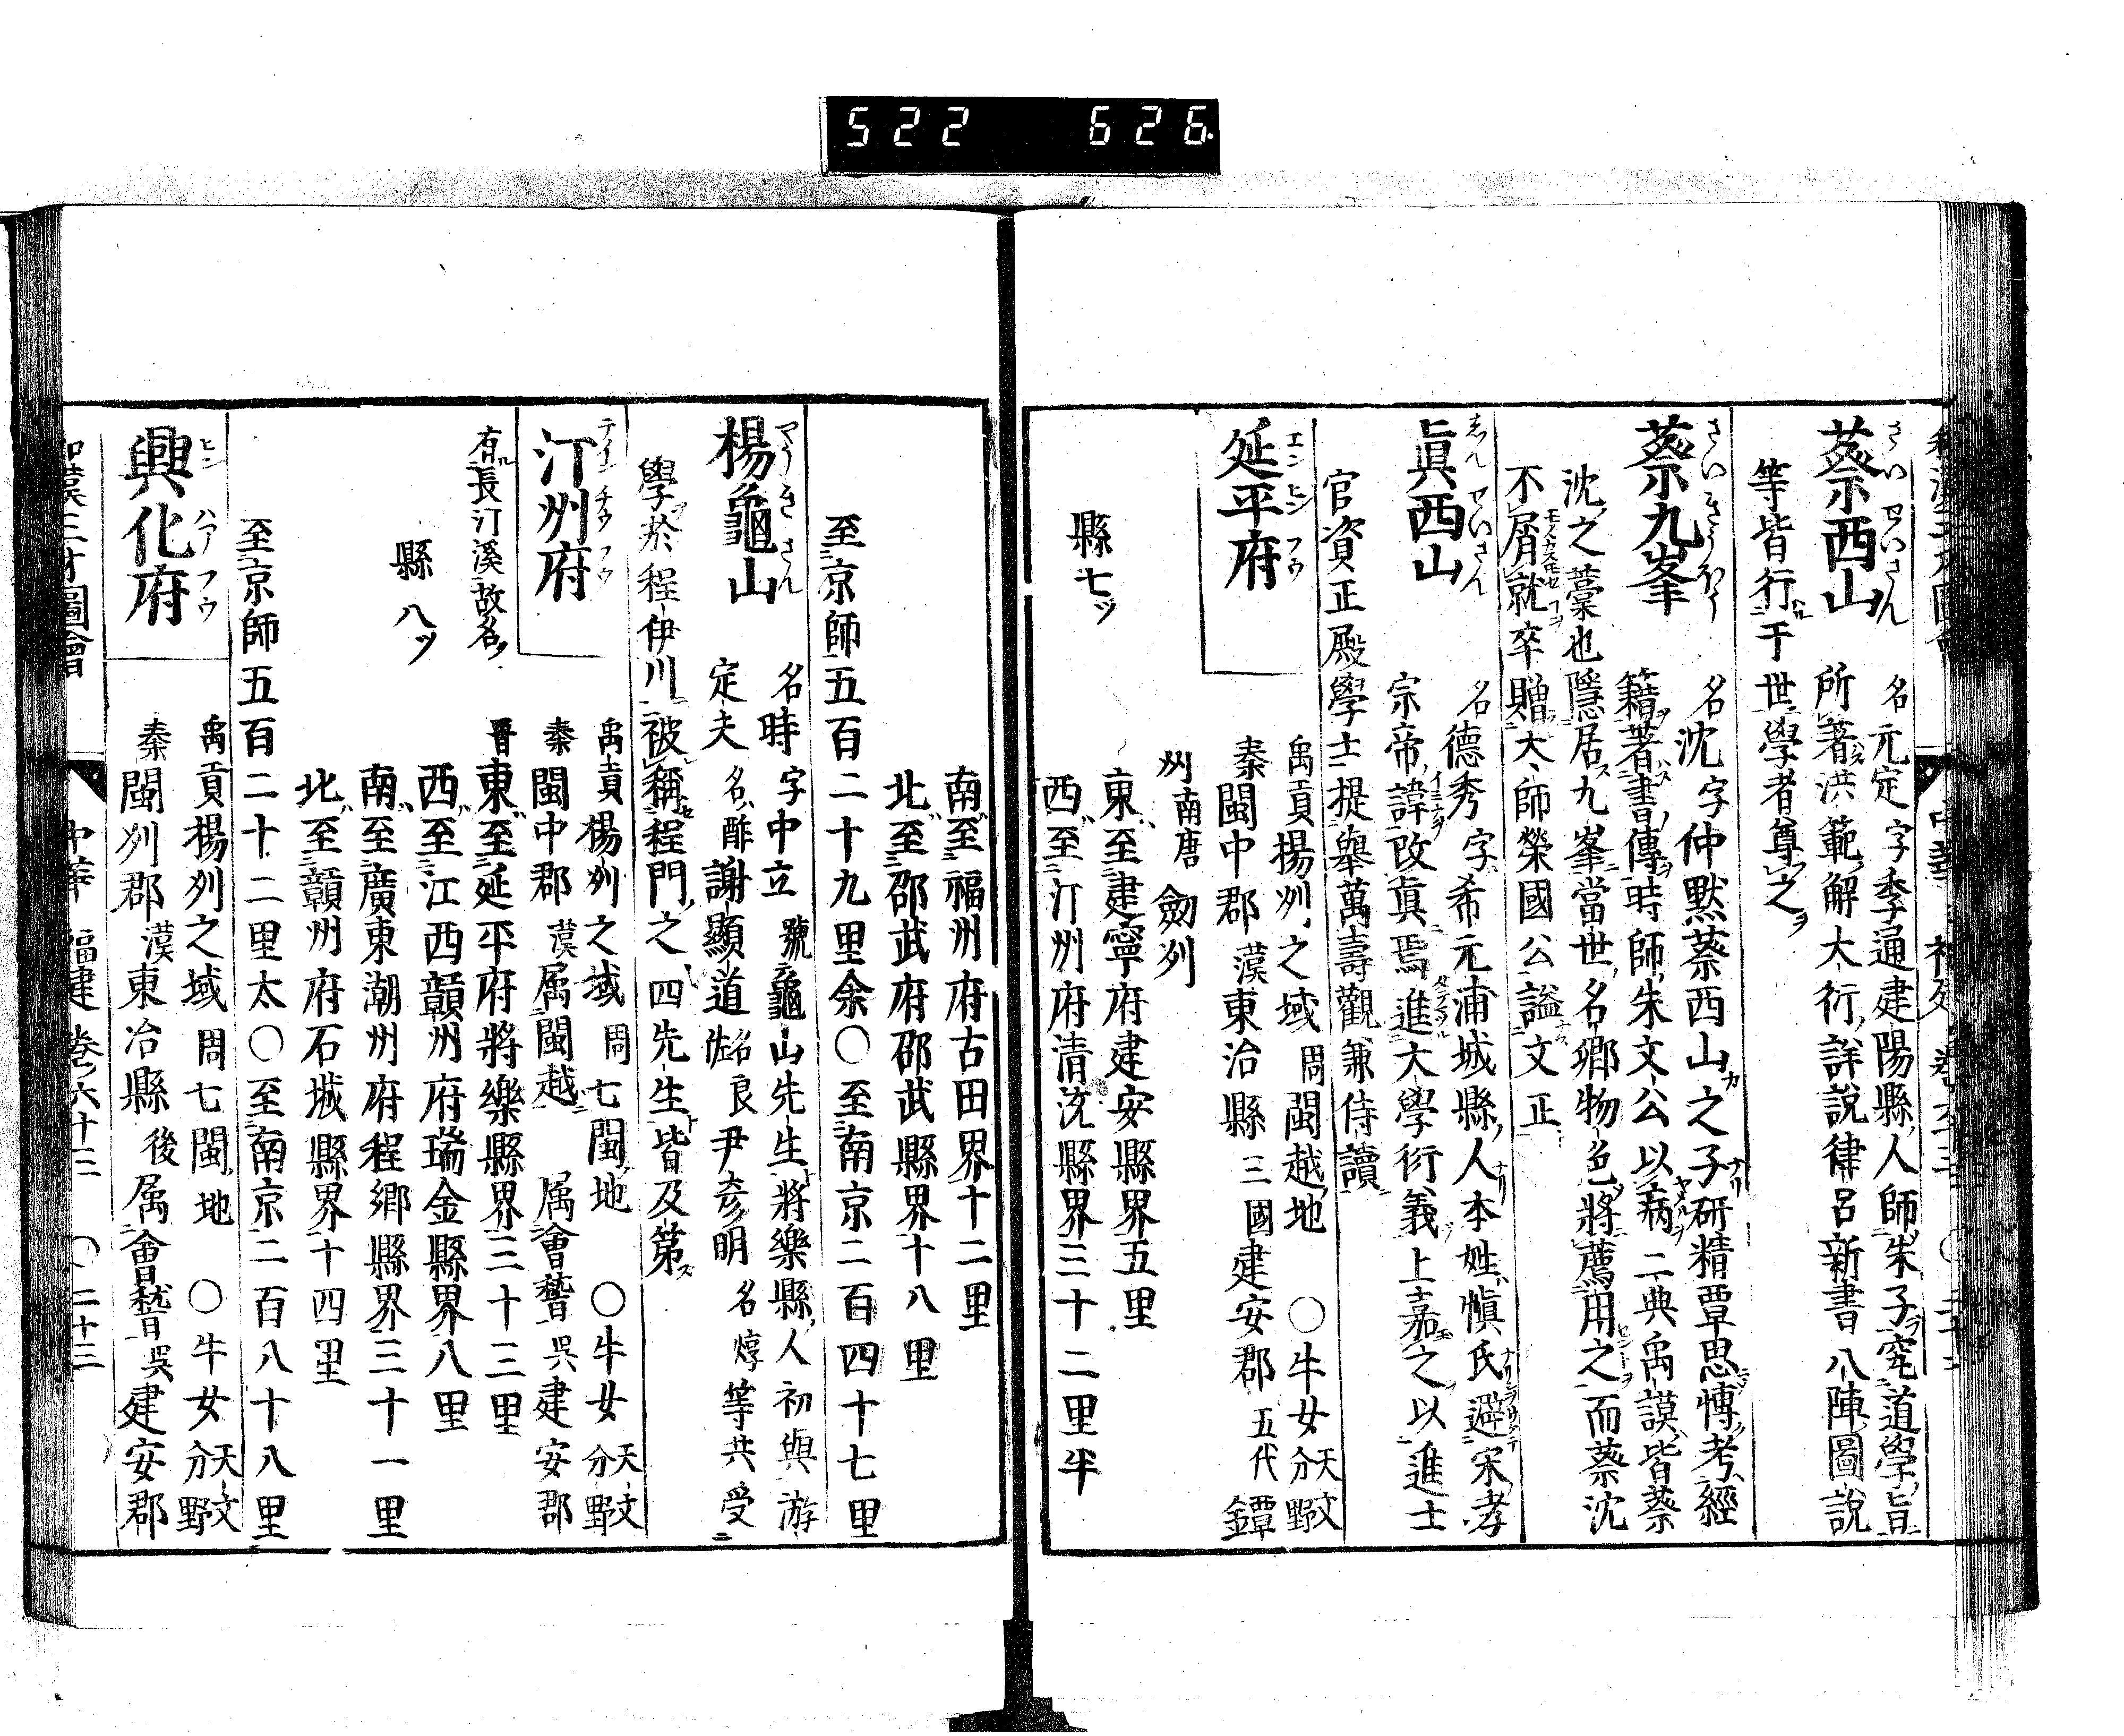 522 626
蔡西山 名元定字季通建陽縣人師朱子究道學旨
所著洪範解大衍詳說律呂新書八陣圖說
等皆行于世學者尊之
蔡九峯 名沈字仲默蔡西山之子研精覃思博考經
籍著書傳時師朱文公以病二典禹謨皆蔡
沈之藁也隱居九峯當世名卿物色將薦用之而蔡沈
不屑就卒贈大師榮國公謚文正
眞西山 名德秀字希元浦城縣人本姓愼氏避宋孝
宗帝諱改眞焉進大學衍義上嘉之以進士
官資正殿學士提舉萬壽觀兼侍讀
延平府 禹貢揚州之域周閩越地 〇牛女天文分野
秦閩中郡漢東冶縣三國建安郡五代鐔
州南唐劔州
縣七ツ 東至建寧府建安縣界五里
西至汀州府清流縣界三十二里半
南至福州府古田界十二里
北至邵武府邵武縣界十八里
至京師五百二十九里余〇至南京二百四十七里
楊龜山 名時字中立號龜山先生將樂縣人初與游
定夫名酢謝顯道名良佐尹彥明名焞等共受
學於程伊川被稱程門之四先生皆及第
汀州府 禹貢楊州之域周七閩地 〇牛女天文分野
秦閩中郡漢属閩越 属會稽吳建安郡
有長汀溪故名 晋東至延平府將樂縣界三十三里
縣八ツ 西至江西贛州府瑞金縣界八里
南至廣東潮州府程鄉縣界三十一里
北至贛州府石城縣界十四里
至京師五百二十二里太〇至南京二百八十八里
興化府 禹貢楊州之域周七閩地 〇牛女天文分野
秦閩州郡漢東冶縣後属會稽吳建安郡
和漢三才圖會 中華 福建 卷六十三 〇二十三